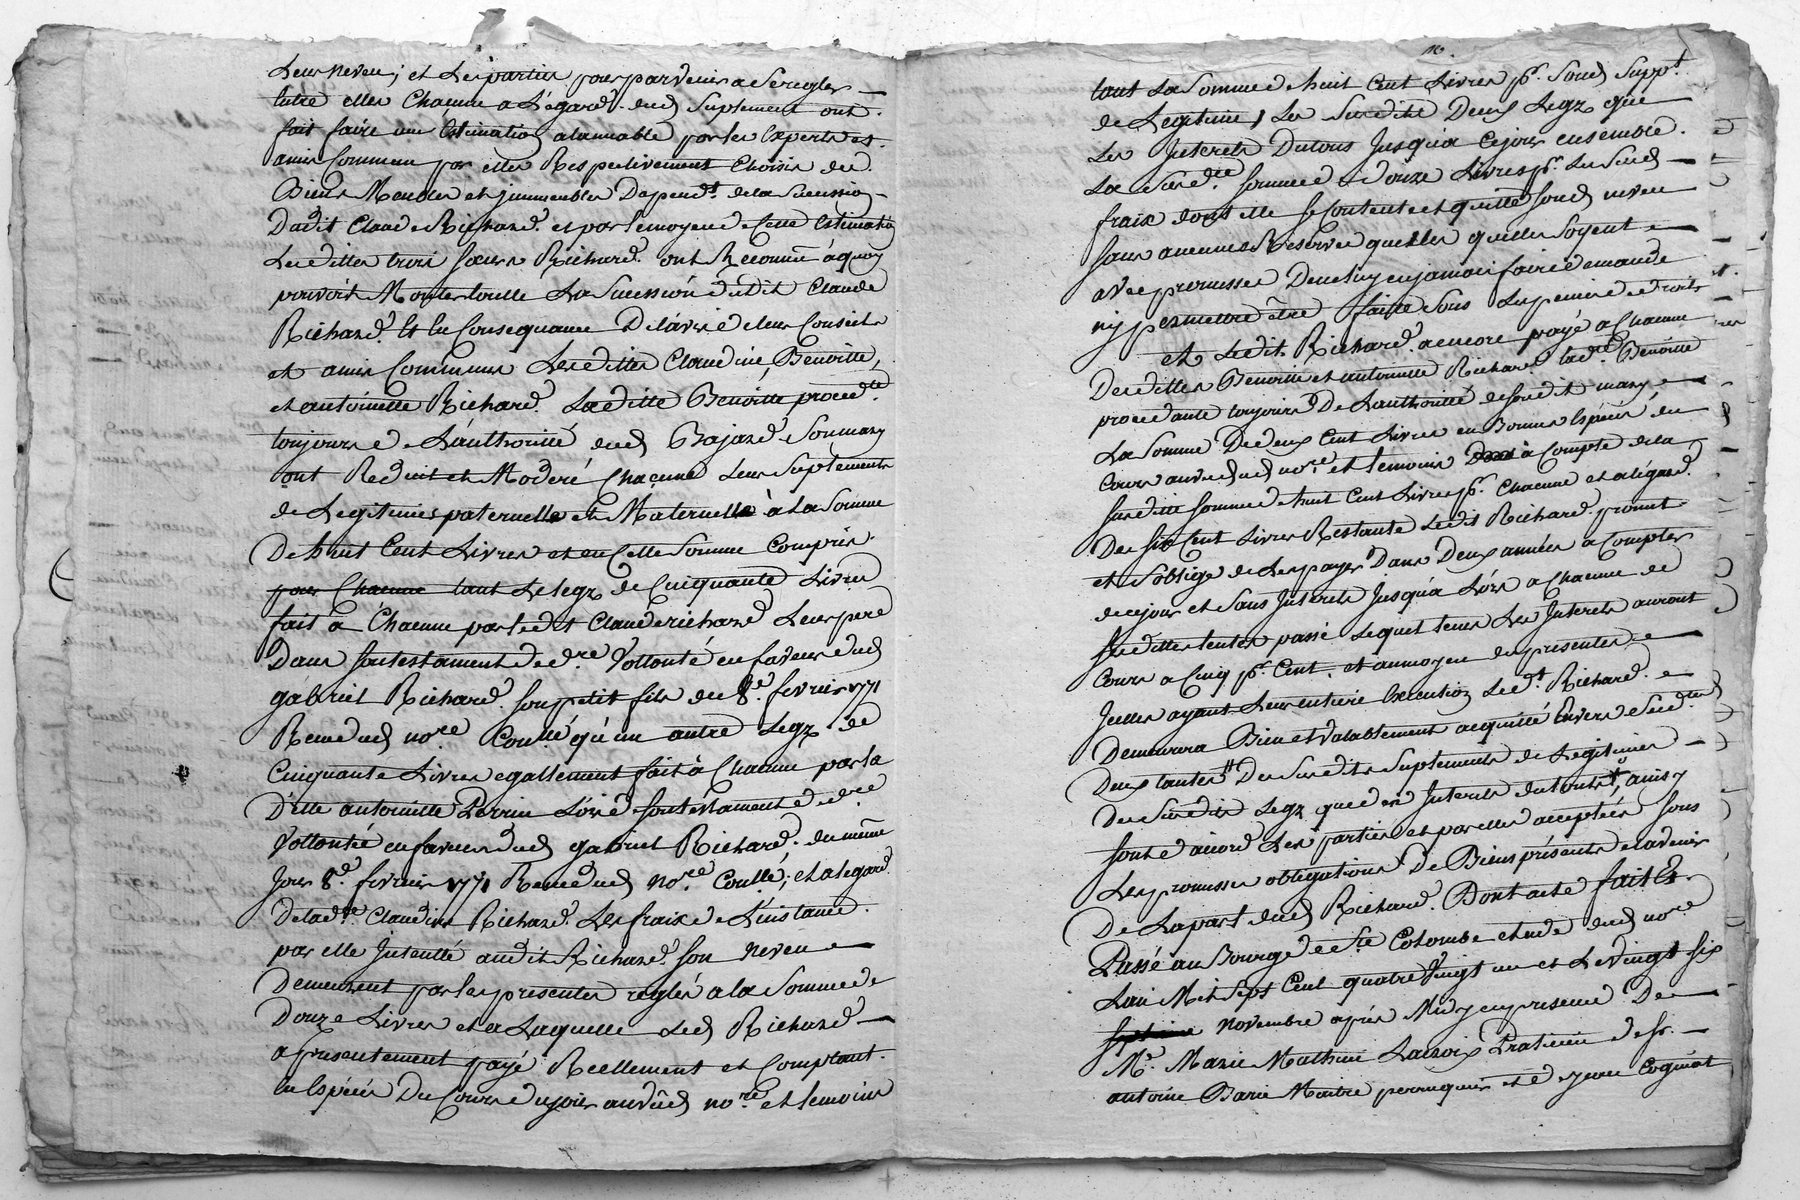 Leur neveu; et Les parties pour parvenir a se regler
Entre elles Chacune a L'egard dud Suplement ont
fait faire une Estimation alamiable par les Experts et
amis Commun par elles Respectivement Choisis des
Biens Meubles et jmmeubles Depend.t de la Sucession
Dudit Claude Richard. et par le moyen de Cette Estimation
Lesdittes trois sœurs Richard. ont Reconnu à quoy
pouvoit Monter toutte La Sucession dudit Claude
Richard. Et En Consequance De l'avis de leurs Conseils
et amis Communs Lesdittes Claudine, Benoitte,
et antoinette Richard. Laditte Benoitte proced.te
toujours de L'authorité dud Bajard Son mary
ont Reduit et Moderé Chacune Leurs Suplements
de Legitimes paternelle et Maternelle à la Somme
De huit Cent Livres et en Cette Somme Compris
pour Chacune tant Le legz de Cinquante Livres
fait à Chacune par ledit Claude richard Leur pere
Dans son testament de d.re Vollonté en faveur dud
gabriel Richard. son petit fils du 8.e fevrier 1771
Reçu dud no.re Coullé qu'un autre Legz de
Cinquante Livres egallement fait à Chacune par la
D'elle antoinette Perrin Leur de son téstament de d.re
Vollontée en faveur dud gabriel Richard. du même
Jour 8.e fevrier 1771 Reçu dud No.re Coullé; et a l'egard
De lad.te Claudine Richard. Les fraix de L'instance
par elle Jntentée audit Richard. son neveu
Demeurent par les presentes reglés a la Somme de
Douze Livres et a Laquelle Led Richard
a presentement payé Reellement et Comptant
En Espèces Du Cours du jour auvû dud no.re et temoins
tant La Somme de huit Cent Livres p.r Sond Supp.t
de Legitime, Les Susdits Deux Legz que
Les Jnterets Du tout Jusqu'a Ce jour ensemble
La Susd.te Somme de Douze Livres p.r Les Susd
fraix dont elle se Contente et quitte sond neveu
sans aucunes Reserves quelles quelles soyent
avec promesse De ne luy en jamais faire demande
ny permettre être faitte sous Les peines de droit
et Ledit Richard. a encore payé a Chacune
Desdittes Benoitte et antoinette Richard lad.te Benoitte
procedante toujours De L'authorité de sondit mary
La Somme De deux Cent Livres en Bonnes Espéces du
Cours auvu dud no.re et temoins à Compte de la
susditte somme de huit Cent Livres p.r Chacune et a l'égard
Des six Cent Livres Restante Ledit Richard. promet
et s'oblige de Les payer Dans Deux années a Compter
de ce jour et sans Jnterets Jusqu'a Lors a Chacune de
susdittes tantes passé Lequel tems Les Jnterets auront
Cours a Cinq p.r Cent. et aumoyen des presentes
Jcelles ayant Leur entiere Execution Led.t Richard.
Demeurera Bien et Valablement acquitté Envers Sesd.tes
Deux tantes Des Susdits Suplements de Legitimes
Des Susdits Legz que des Jnterets du tout, ainsy
sont d'acord Les parties et par elles acceptées sous
Les promesses obligations De Biens présents et avenir
De Lapart dud Richard. Dont acte fait Et
Passé au Bourg de S.te Colombe etude dud no.re
L'an Mil Sept Cent quatre Vingt un et Le Vingt six
novembre après Midy en presence De
M.e Marie Mathieu Lacroix Praticien de Sr.
antoine Barié Maitre perruquier et de s.r jean Coquiot